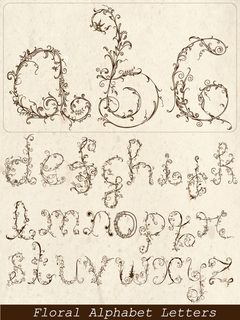 a b c
d e f g h i j k
l m n o p q r
s t u v w x y z
Floral Alphabet Letters